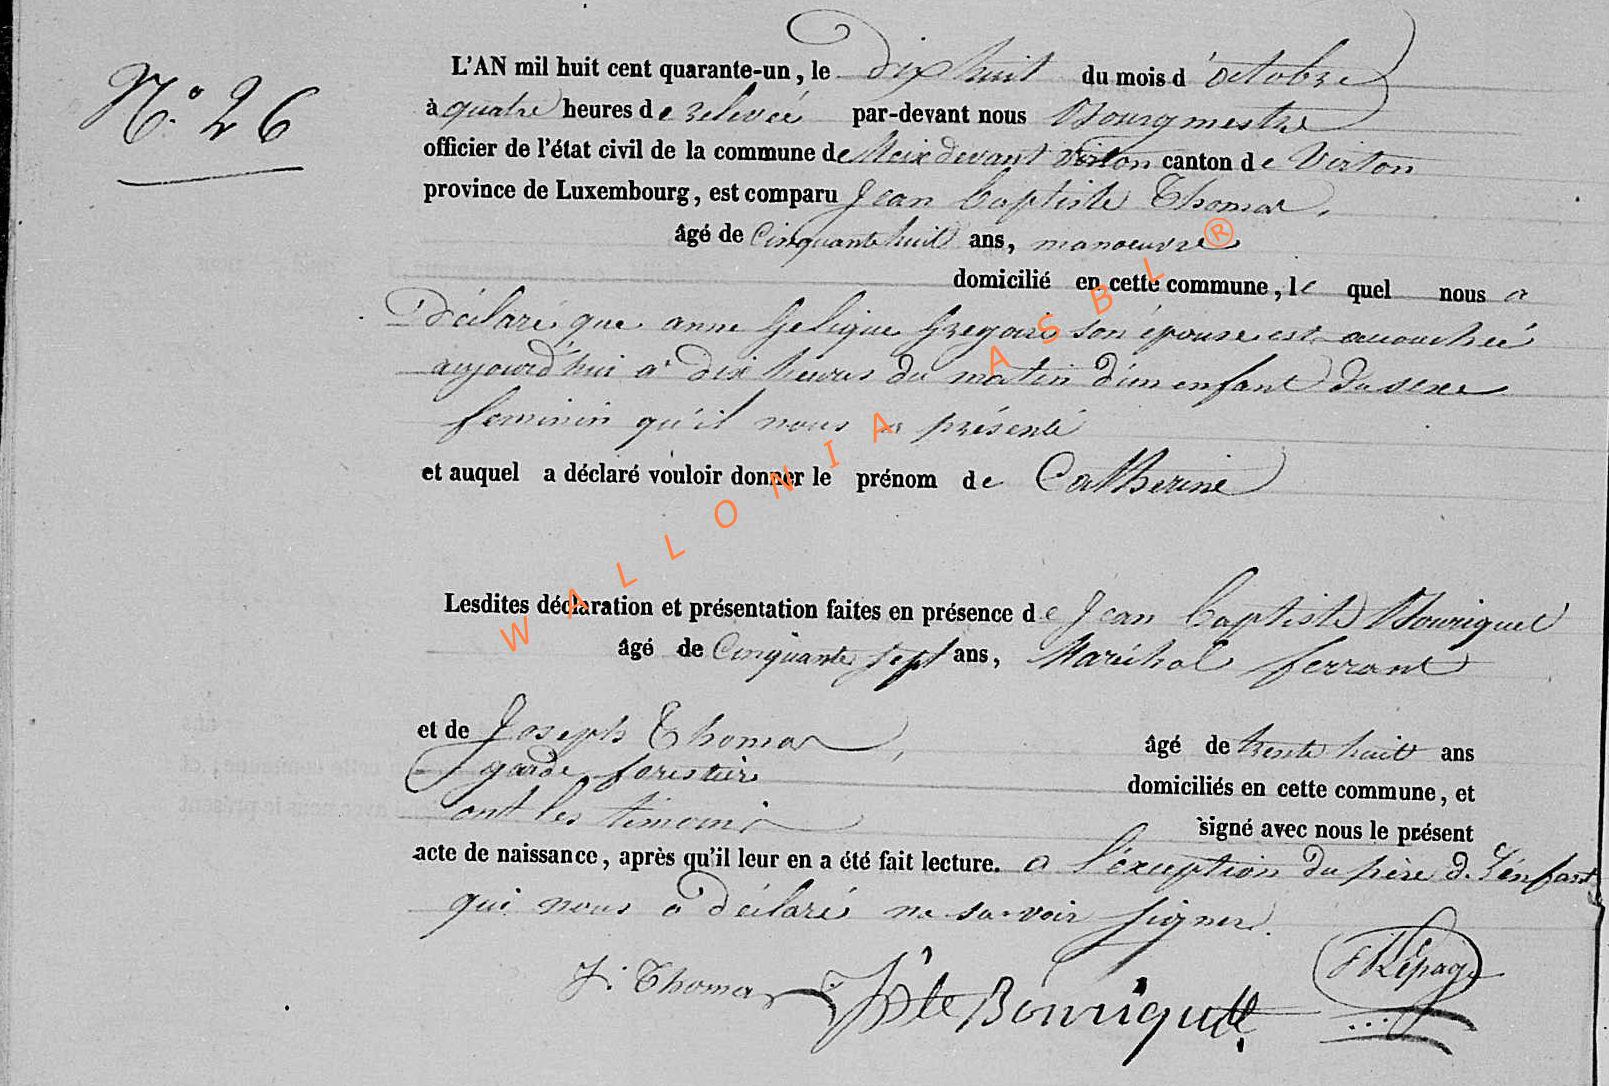 N.° 26
L'AN mil huit cent quarante-un, le dix huit du mois d'octobre
à quatre heures de relevée par-devant nous Bourgmestre
officier de l'état civil de la commune de Meix devant Virton canton de Virton
province de Luxembourg, est comparu Jean baptiste Thomas,
âgé de Cinquante huit ans, manoeuvre
domicilié en cette commune, le quel nous a
Déclaré que anne Gregoire son épouse est accouchée
aujourd'hui a dix heures du matin d'un enfant du sexe
feminin qu'il nous a présenté
et auquel a déclaré vouloir donner le prénom de Catherine
Lesdites déclaration et présentation faites en présence de Jean baptiste Bouriquet
âgé de Cinquante sept ans, Maréchal ferrant
et de Joseph Thomas, âgé de trente huit ans
garde forestier domiciliés en cette commune, et
ont les temoins signé avec nous le présent
acte de naissance, après qu'il leur en a été fait lecture. a l'exception du père de l'énfant
qui nous a déclaré ne savoir signer.
J. Thomas JBte Bouriquet Lépage
WALLONIA ASBL ®